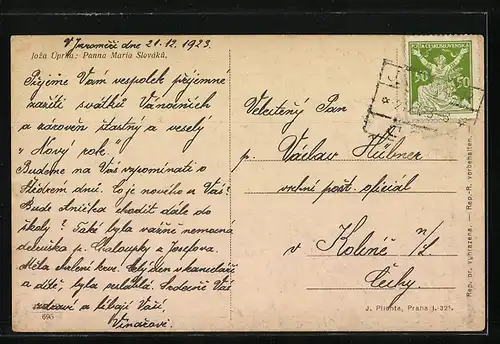 V Jaroměři dne 21.12.1923.
Joža Uprka: Panna Maria Slováků.
Přejeme Vám vespolek příjemné
zažití svátků Vánočních
a zároveň šťastný a veselý
"Nový rok."
Budeme na Vás vzpomínati o
Štědrém dnů. Co je nového u Vás?
Bude Anička chodit dále do
školy? Také byla vážně nemocná
p. Chaloupky z Josefova.
Měla krve. Celý den v kanceláři
a dítě, byla Srdečně Vás
zdraví a líbají Vaši,
695
Velectěný Pan
p. Václav Hübner
vrchní pošt. oficiál
v Kolíně n/L.
Čechy.
POŠTA ČESKOSLOVENSKÁ
50 50
J. Pliente, Praha I. 321.
Rep. pr. vyhrazena. — Rep.-R. vorbehalten.